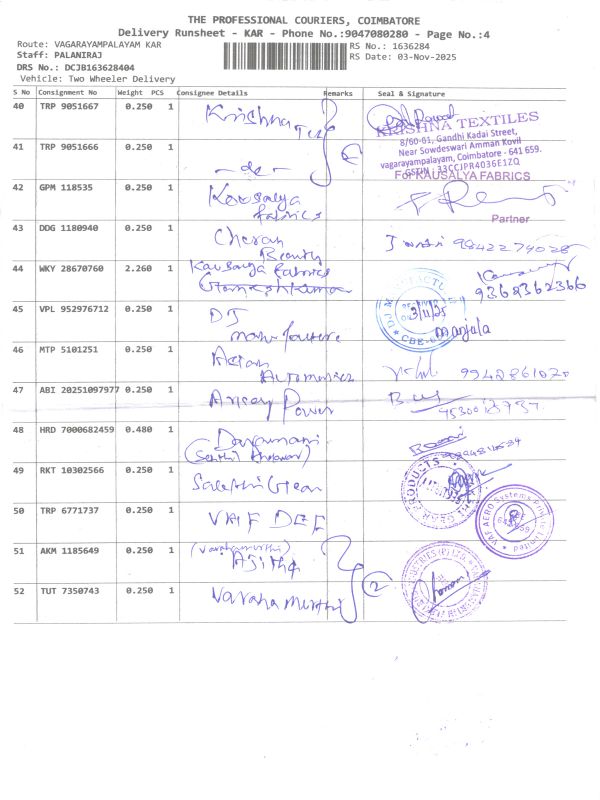 THE PROFESSIONAL COURIERS, COIMBATORE
Delivery Runsheet - KAR - Phone No.:9047080280 - Page No.:4
Route: VAGARAYAMPALAYAM KAR
RS No.: 1636284
Staff: PALANIRAJ
RS Date: 03-Nov-2025
DRS No.: DCJB163628404
Vehicle: Two Wheeler Delivery
S No Consignment No Weight PCS Consignee Details Remarks Seal & Signature
40 TRP 9051667 0.250 1 Krishna Tex
KRISHNA TEXTILES
8/60-61, Gandhi Kadai Street,
Near Sowdeswari Amman Kovil
vagarayampalayam, Coimbatore - 641 659.
GSTIN : 33CCJPR4036E1ZQ
41 TRP 9051666 0.250 1 - do -
For KAUSALYA FABRICS
42 GPM 118535 0.250 1 Kousalya
Fabrics
Partner
43 DDG 1180940 0.250 1 Cheran
Beauty
9842274028
44 WKY 28670760 2.260 1 Kausalya Fabrics
9362362366
45 VPL 952976712 0.250 1 DJ
manufacture
3/11/25
Manjala
46 MTP 5101251 0.250 1
9942861020
47 ABI 20251097977 0.250 1 Power
48 HRD 7000682459 0.480 1
49 RKT 10302566 0.250 1
PRODUCTS
50 TRP 6771737 0.250 1 VAF DEF
VAF AERO Systems Private Limited
51 AKM 1185649 0.250 1 (Varahamurthi)
Ajitha
2
52 TUT 7350743 0.250 1 Varaha Murthi